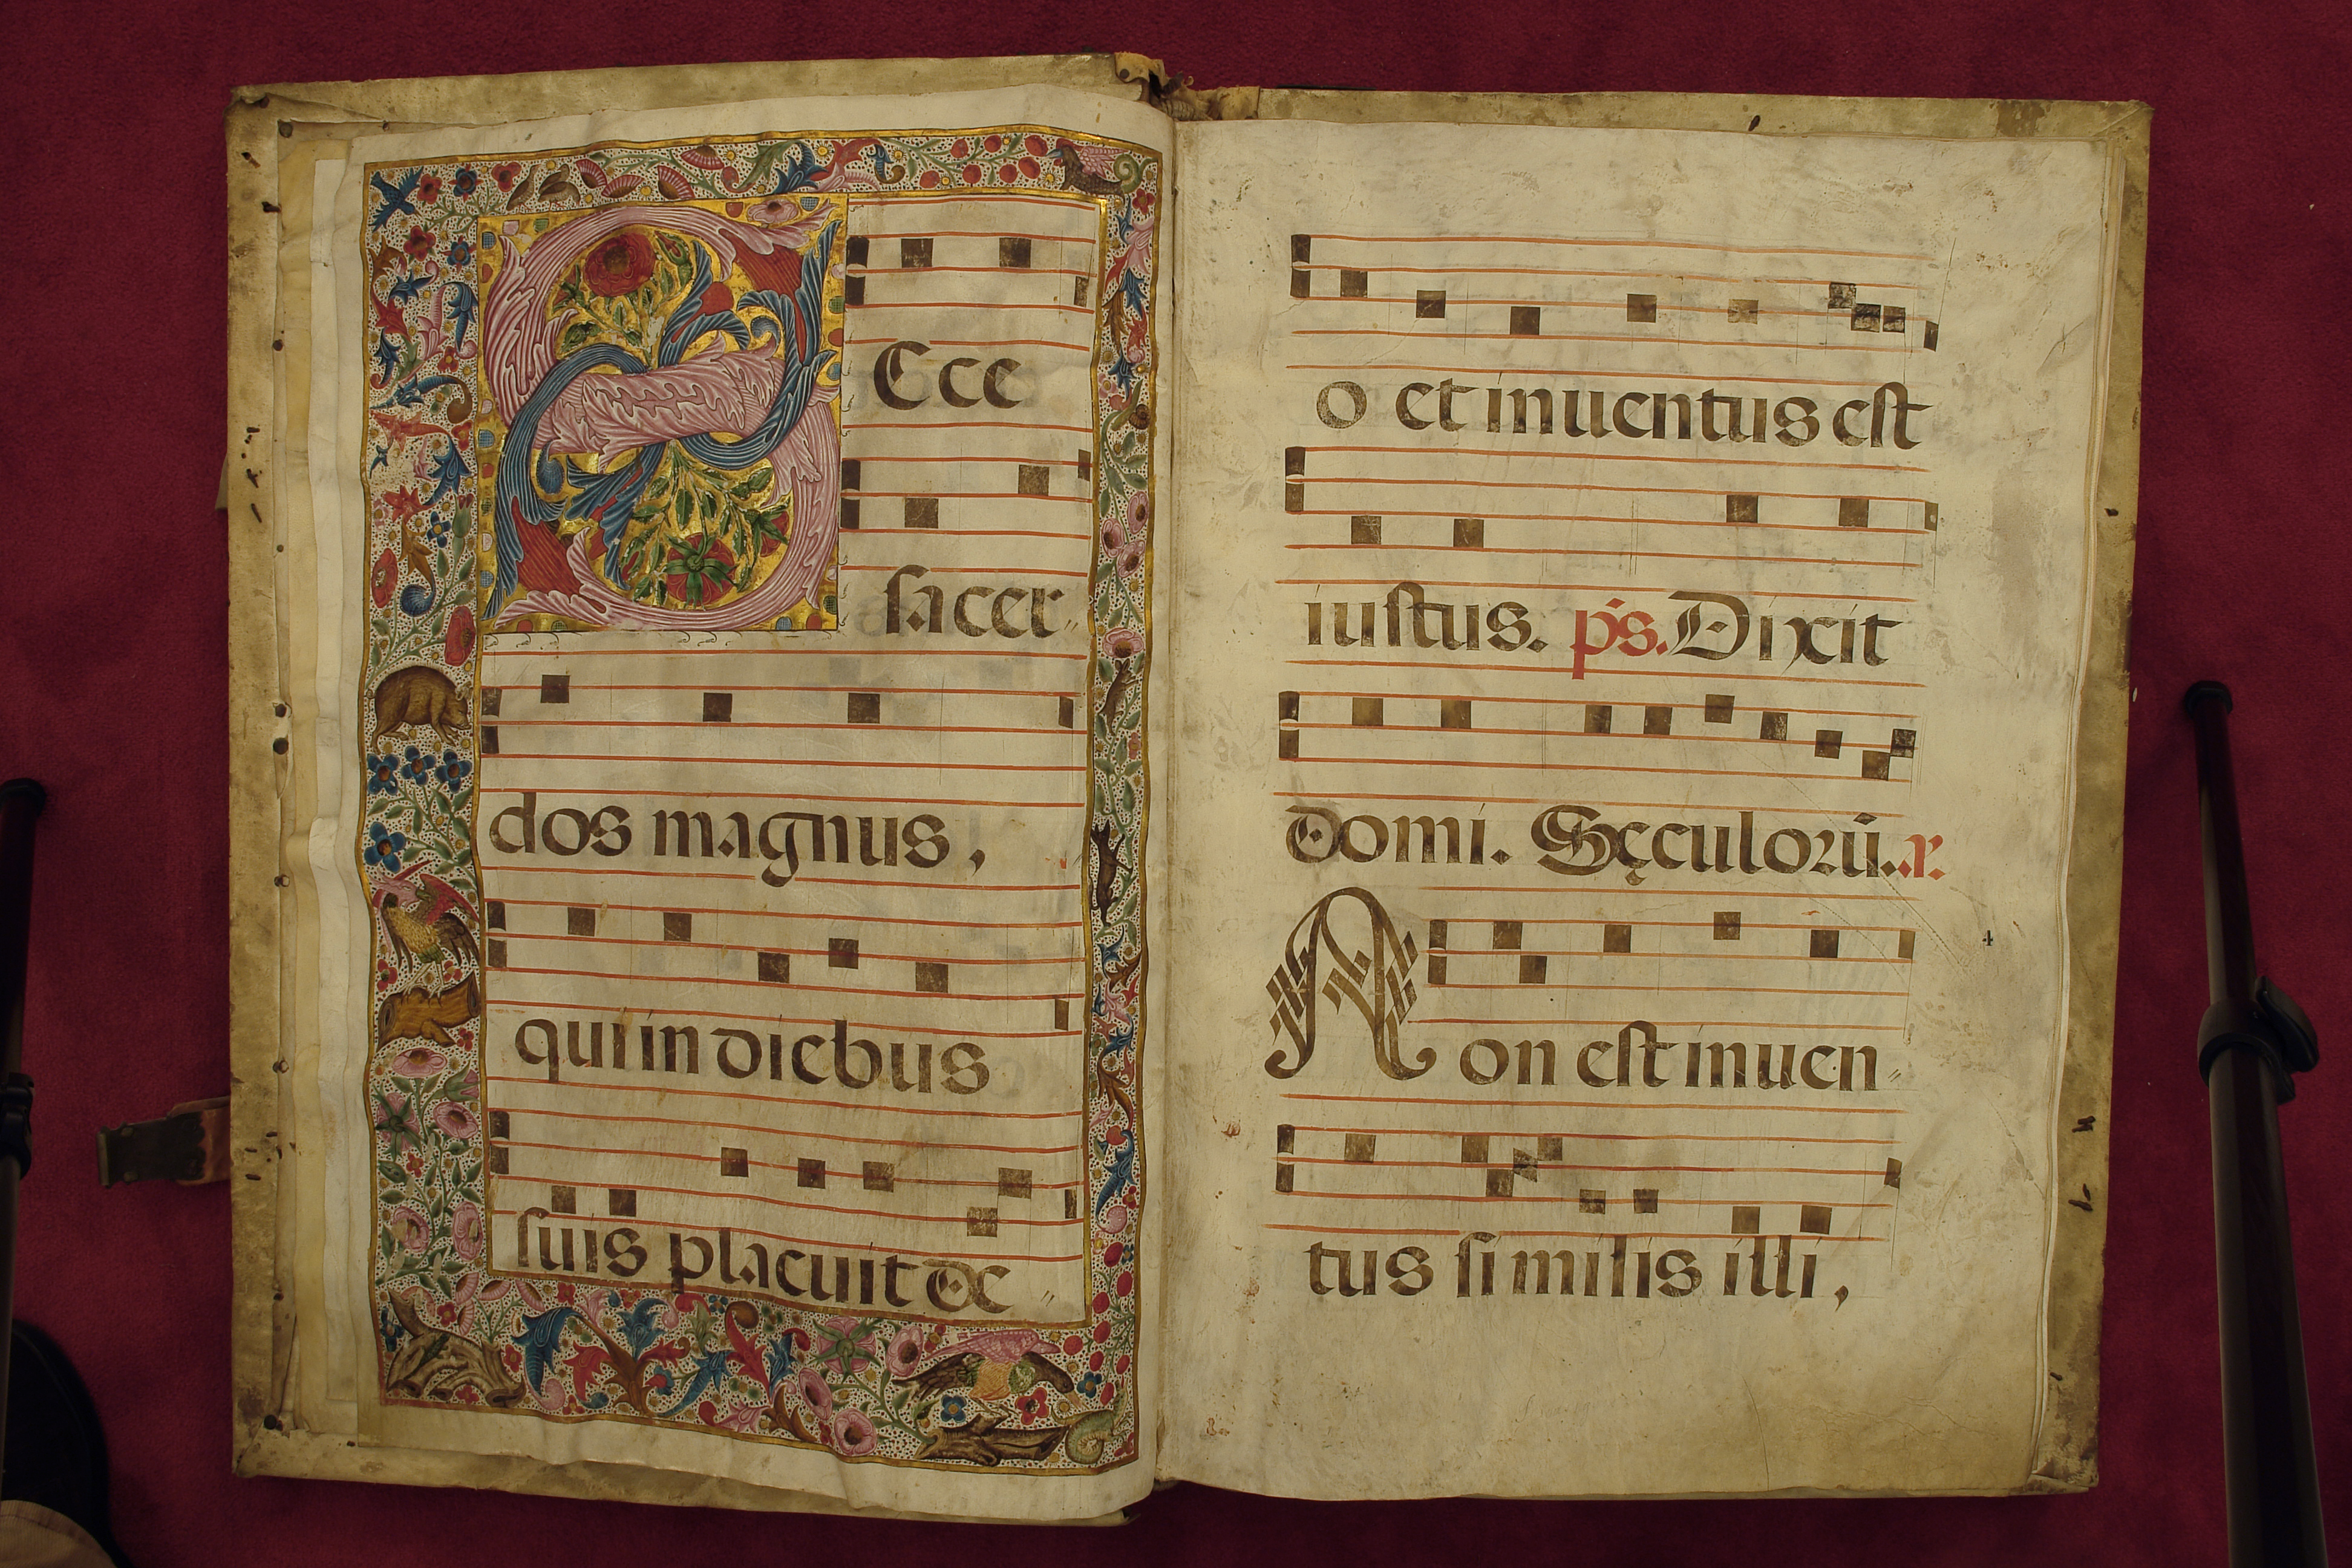 Ecce
sacer
dos magnus,
qui in diebus
suis placuit de
o et inuentus est
iustus. ps. Dixit
domi. Sęculorū. r.
4
Non est inuen
tus similis illi,